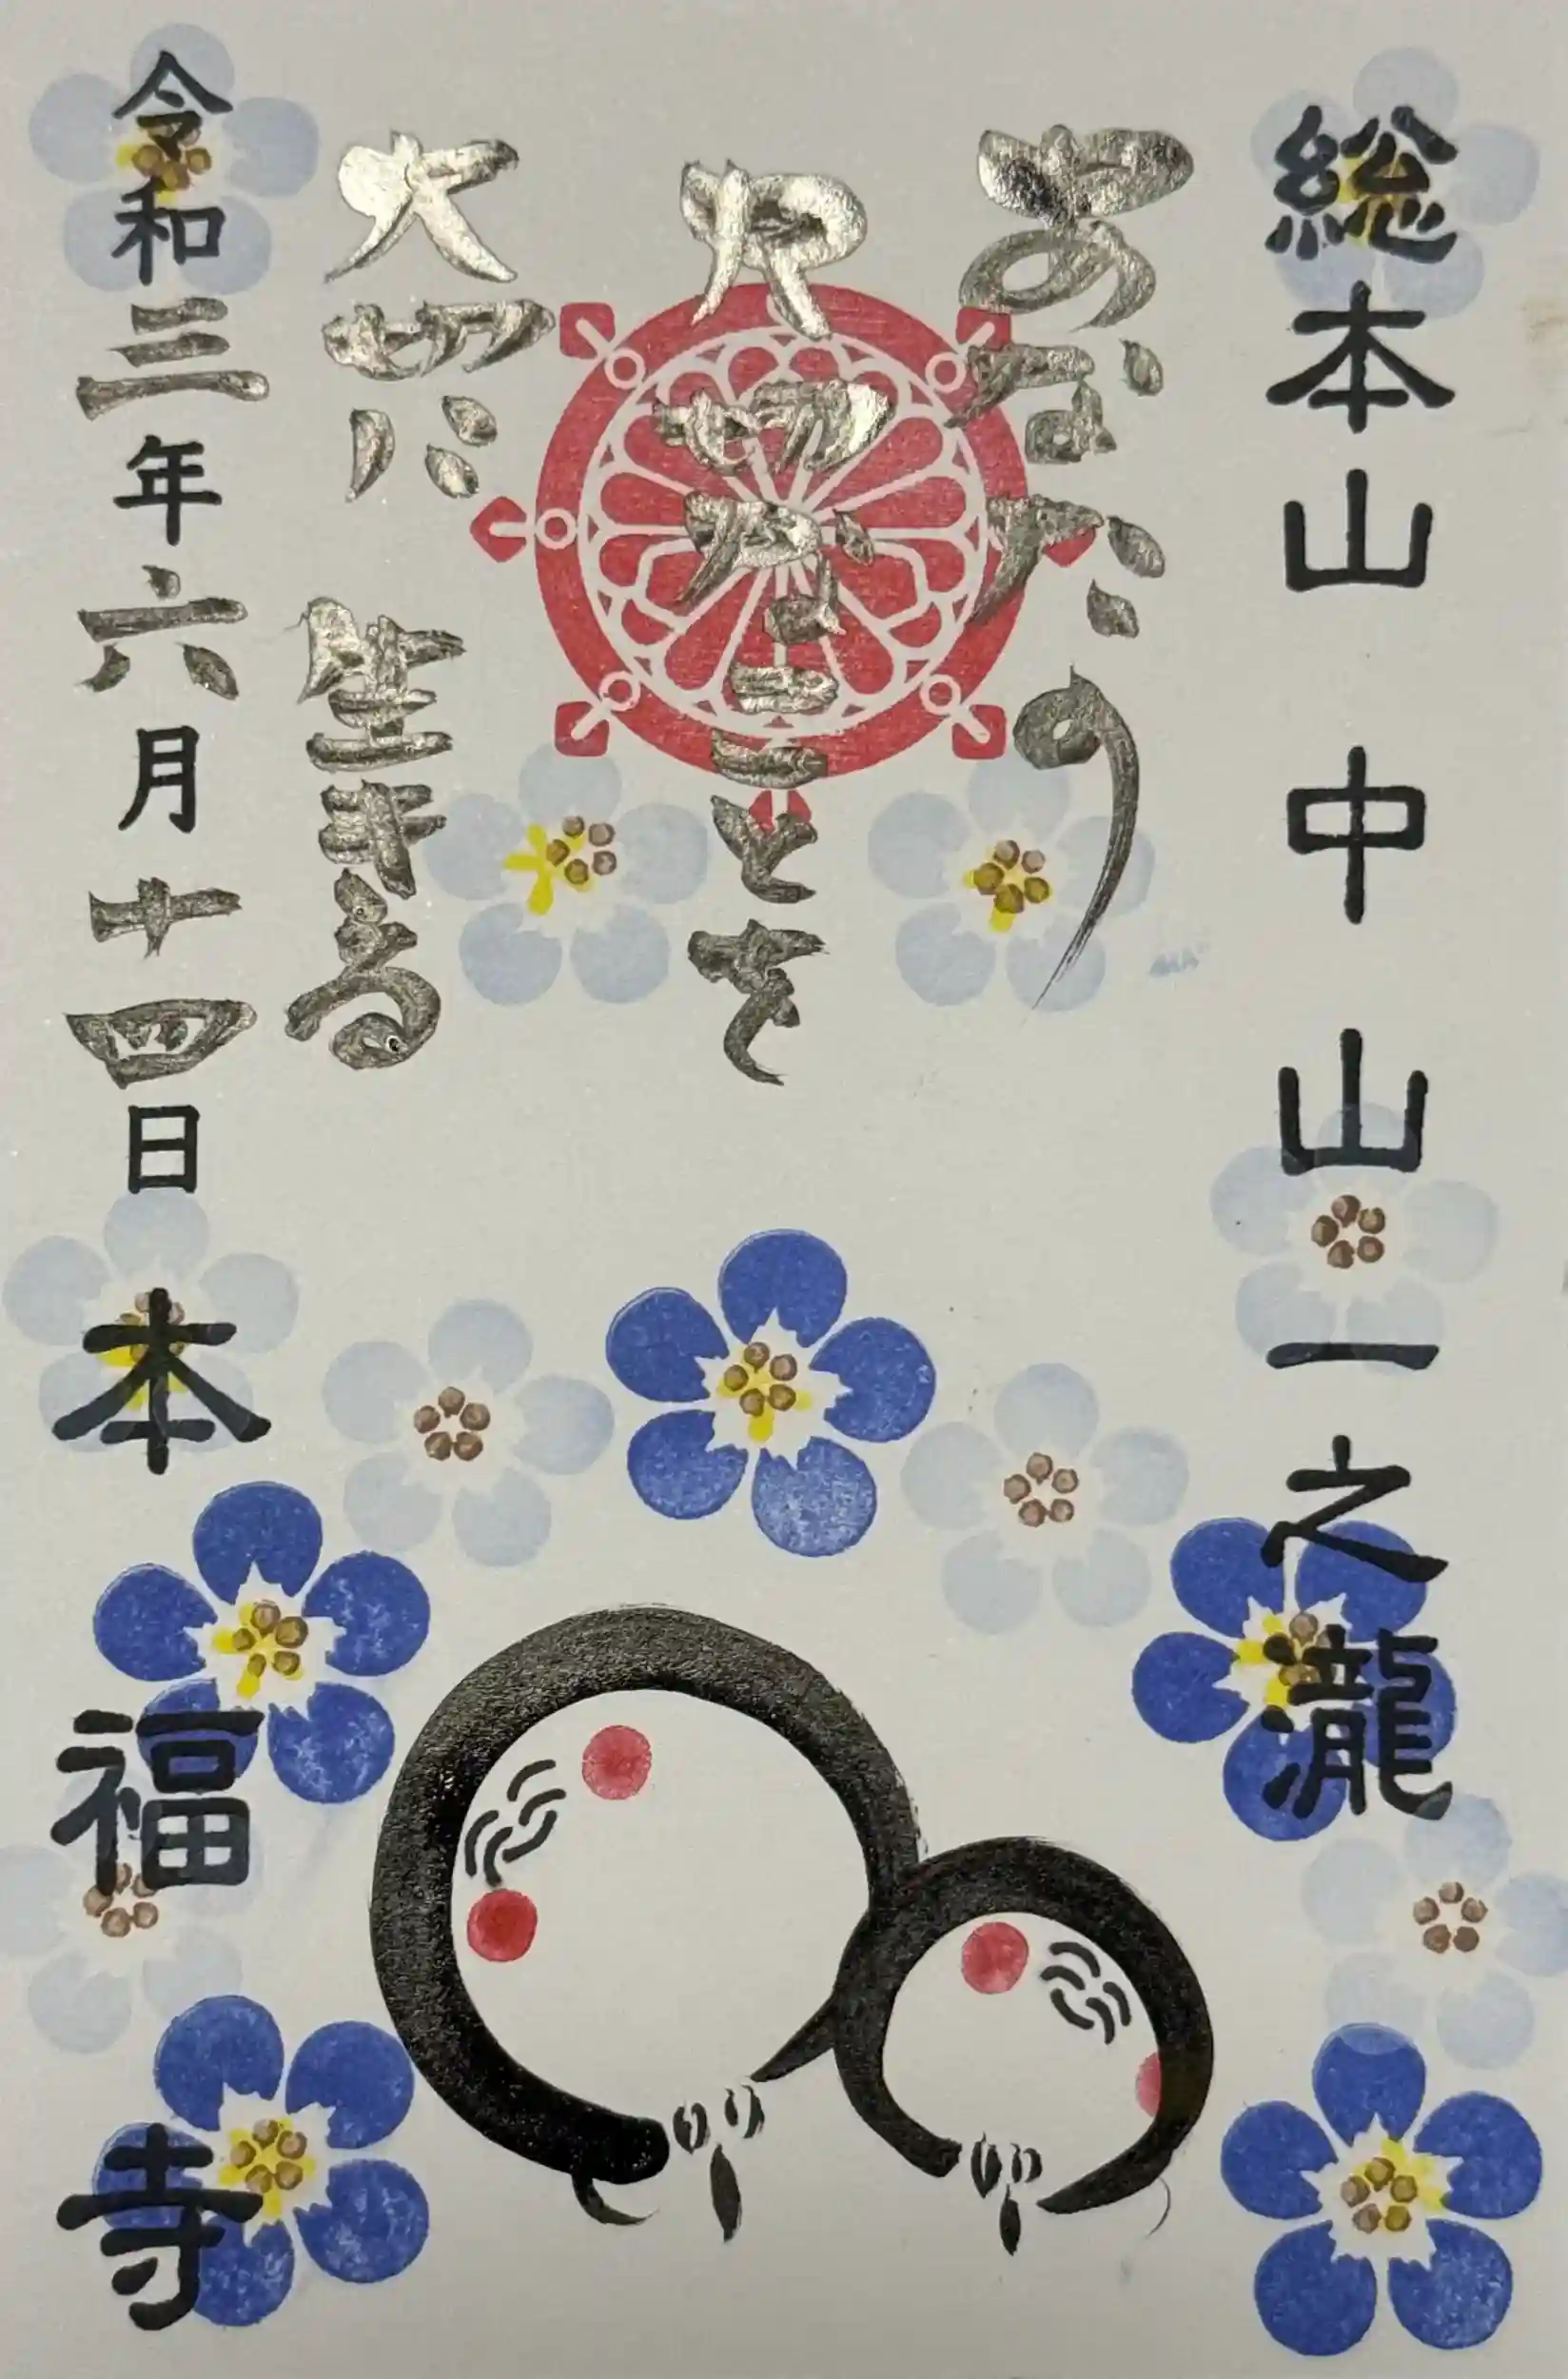 総本山中山一之瀧
あなたの
大切なことを
大切に 生きる
令和三年六月十四日 本福寺